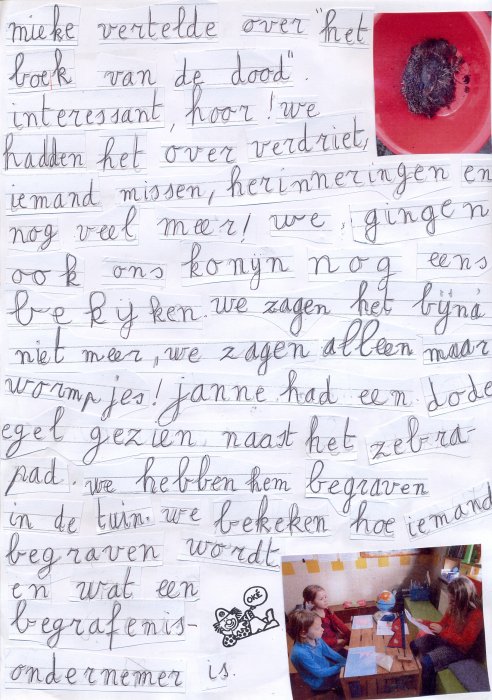 mieke vertelde over "het
boek van de dood".
interessant, hoor! we
hadden het over verdriet,
iemand missen, herinneringen en
nog veel meer! we gingen
ook ons konijn nog eens
bekijken. we zagen het bijna
niet meer, we zagen alleen maar
wormpjes! janne had een dode
egel gezien naast het zebra-
pad. we hebben hem begraven
in de tuin. we bekeken hoe iemand
begraven wordt
en wat een
begrafenis-
ondernemer is.
OKÉ